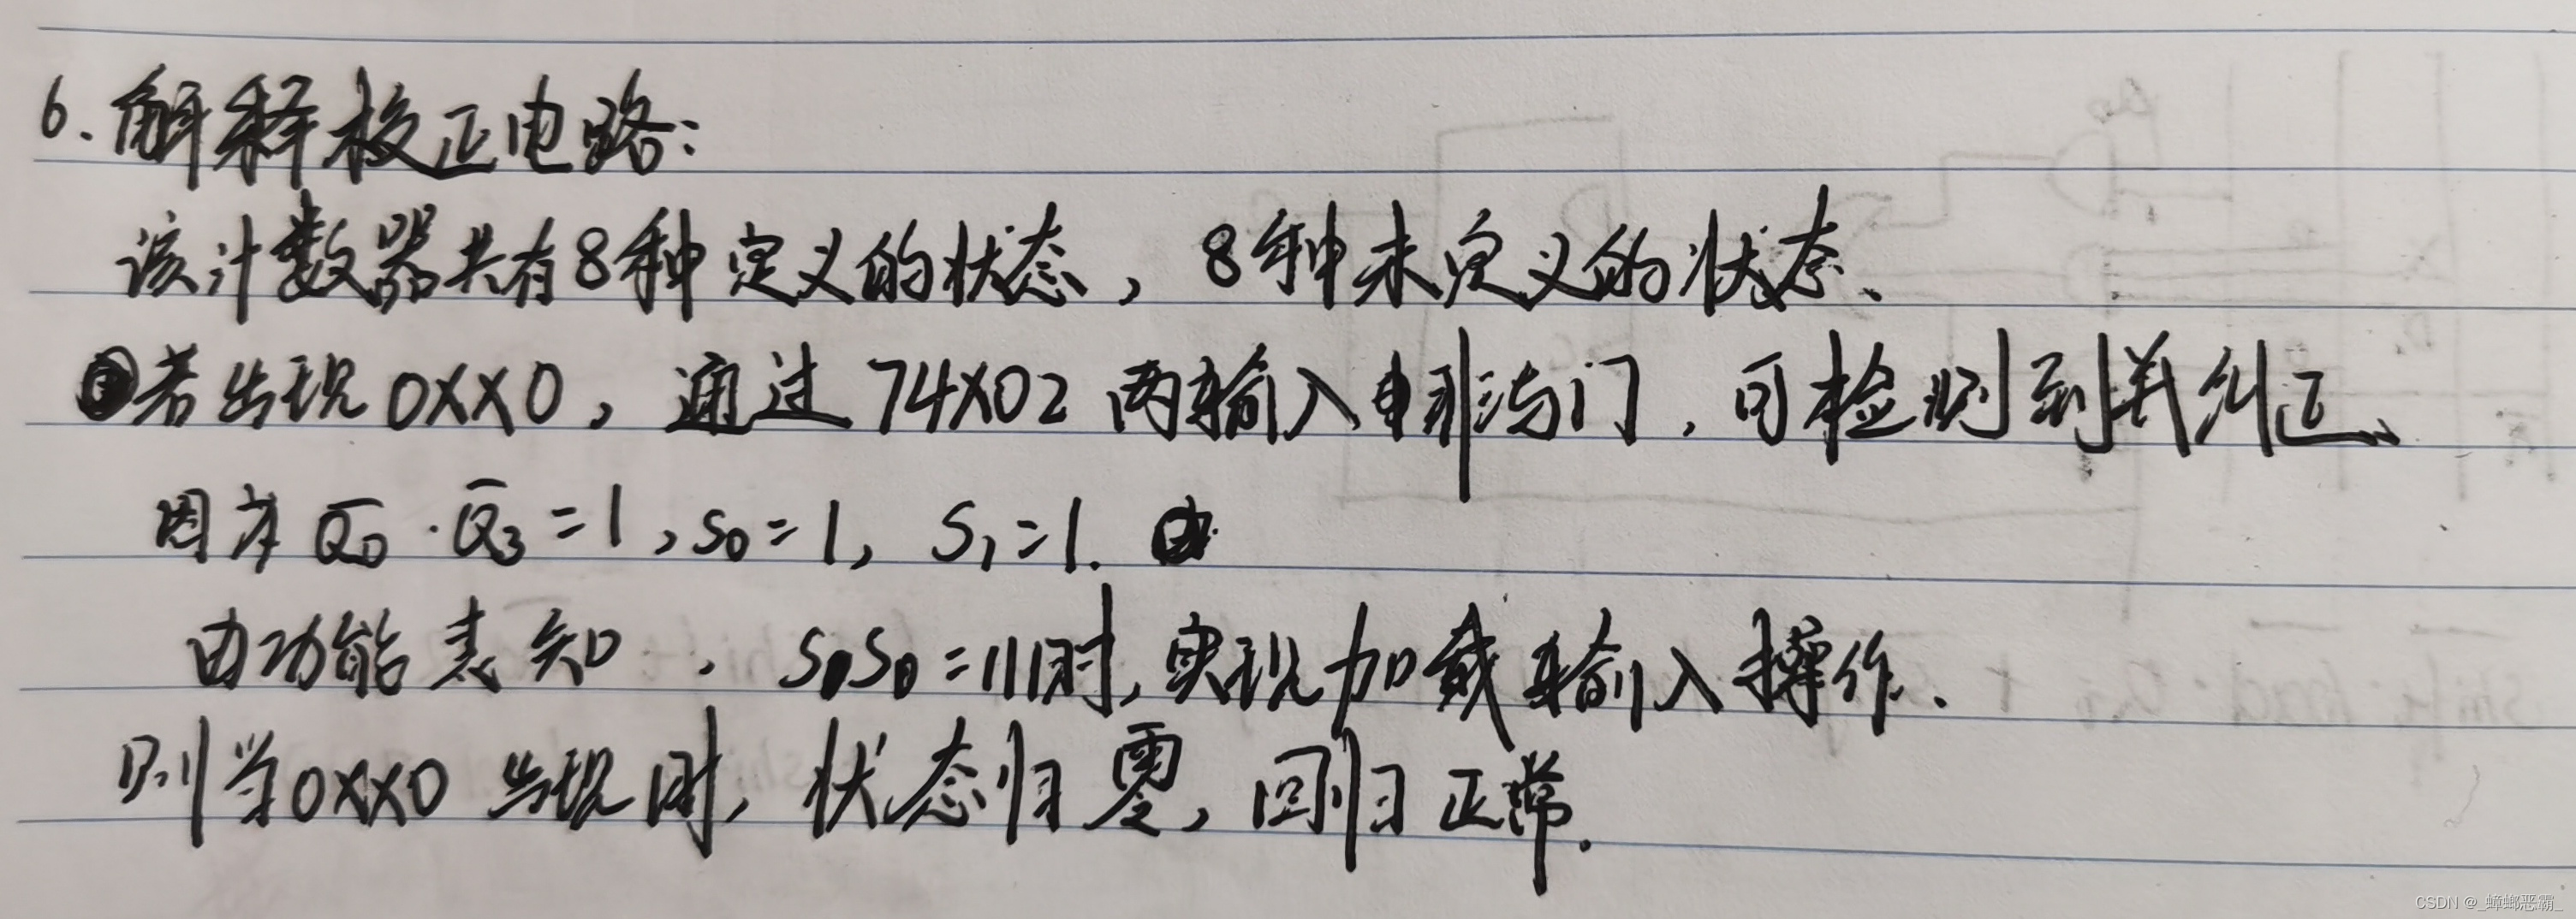 6.解释校正电路:
该计数器共有8种定义的状态，8种未定义的状态、
若出现0XX0，通过74X02两输入非与门，可检测到并纠正、
因为Q̅0·Q̅3=1,S0=1，S1=1.
由功能表知，S1S0=11时,实现加载输入操作.
则当0XX0出现时，状态归零，回归正常.
CSDN @_蟑螂恶霸_